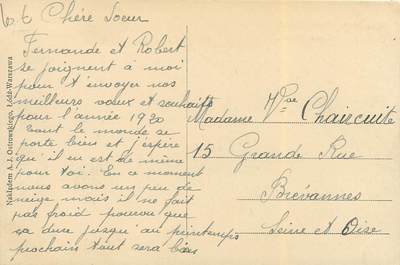 66 Chère Soeur
Fernande et Robert
se joignent à moi
pour t'envoyer nos
meilleurs vœux et souhaits
pour l'année 1920
Tout le monde se
porte bien et j'espère
qu'il en est de même
pour toi. En ce moment
nous avons un peu de
neige mais il ne fait
pas froid pourvu que
ça dure jusqu'au printemps
prochain tout sera bien
Madame Vve Chaircuite
15 Grande Rue
Brévannes
Seine et Oise
Nakładem A. J. Ostrowskiego, Łódź-Warszawa